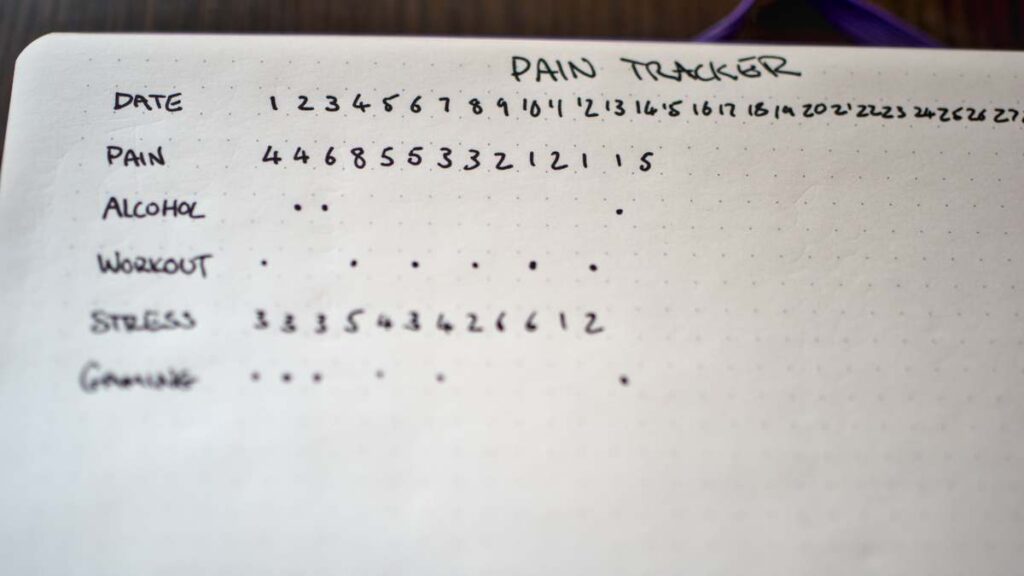 PAIN TRACKER
DATE 1 2 3 4 5 6 7 8 9 10 11 12 13 14 15 16 17 18 19 20 21 22 23 24 25 26 27
PAIN 4 4 6 8 5 5 3 3 2 1 2 1 1 5
ALCOHOL • •  •
WORKOUT • • • • • •
STRESS 3 3 3 5 4 3 4 2 6 6 1 2
GAMING • • • • • •